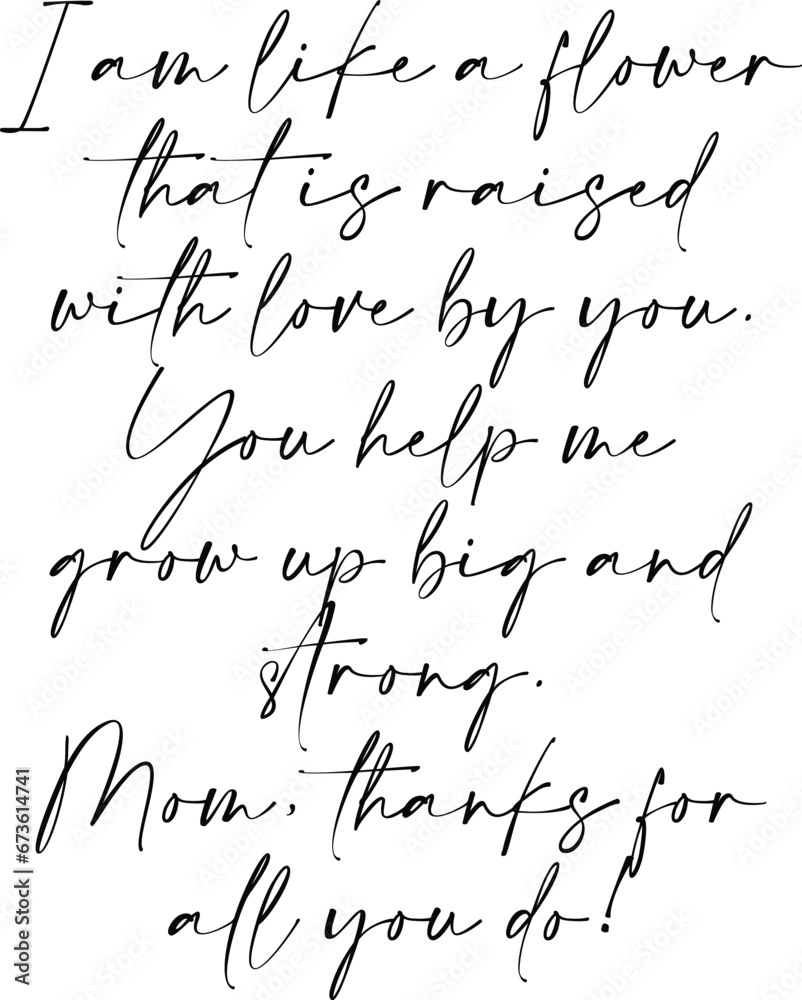 I am like a flower
that is raised
with love by you.
You help me
grow up big and
strong.
Mom, thanks for
all you do!
Adobe Stock | #673614741